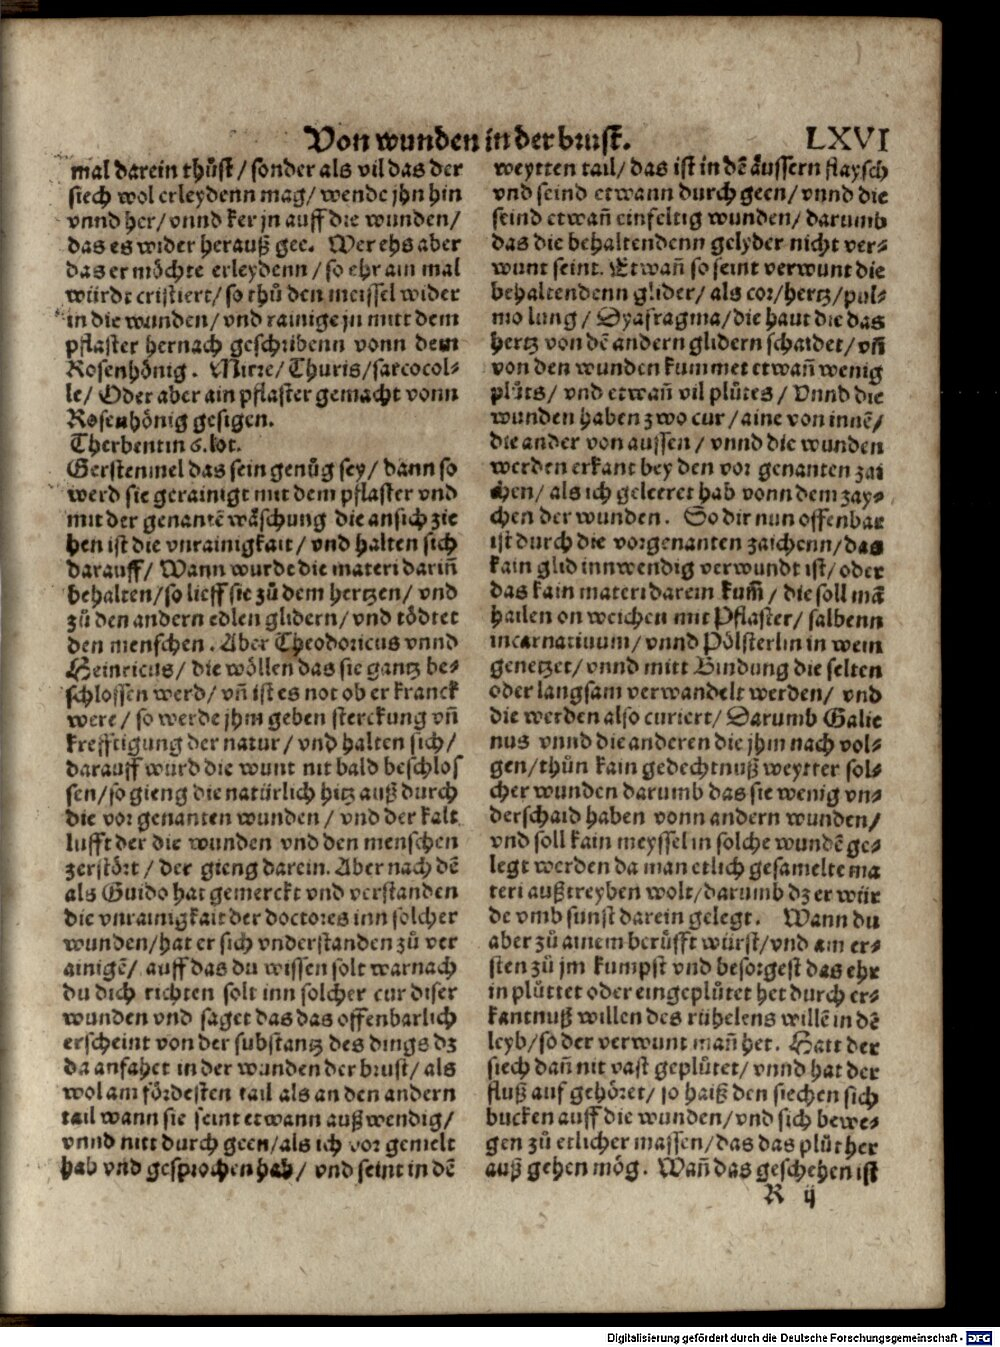 Von wunden in der brust. LXVI
mal darein thůst / sonder als vil das der
siech wol erleydenn mag / wende jhn hin
vnnd her / vnnd ker jn auff die wunden /
das es wider herauß gee. Wer ehs aber
das er möchte erleydenn / so ehr ain mal
würdt cristiert / so thů den meissel wider
in die wunden / vnd rainige jn mitt dem
pflaster hernach geschribenn vonn dem
Rosenhönig. Mirre / Thuris / sarcocol⸗
le / Oder aber ain pflaster gemacht vonn
Rosenhönig gesigen.
Therbentin 6. lot.
Gerstenmel das sein genůg sey / dann so
werd sie gerainigt mit dem pflaster vnd
mit der genantē wäschung die an sich zie
hen ist die vnrainigkait / vnd halten sich
darauff / Wann wurde die materi dariñ
behalten / so lieff sie zů dem hertzen / vnd
zů den andern edlen glidern / vnd tödtet
den menschen. Aber Theodoricus vnnd
Heinricus / die wöllen das sie gantz be⸗
schlossen werd / vñ ist es not ob er kranck
were / so werde jhm geben sterckung vñ
krefftigung der natur / vnd halten sich /
darauff wurd die wunt nit bald beschlos
sen / so gieng die natürlich hitz auß durch
die vor genanten wunden / vnd der kalt
lufft der die wunden vnd den menschen
zerstört / der gieng darein. Aber nach dē
als Guido hat gemerckt vnd verstanden
die vnrainigkait der doctores inn solcher
wunden / hat er sich vnderstanden zů ver
ainigē / auff das du wissen solt warnach
du dich richten solt inn solcher cur diser
wunden vnd saget das das offenbarlich
erscheint von der substantz des dings dz
da anfahet in der wunden der brust / als
wol am fördesten tail als an den andern
tail wann sie seint etwann außwendig /
vnnd nitt durch geen / als ich vor gemelt
hab vnd gesprochen hab / vnd seint in dē
weytten tail / das ist in dē äussern flaysch
vnd seind etwann durch geen / vnnd die
seind etwañ einfeltig wunden / darumb
das die behaltendenn gelyder nicht ver⸗
wunt seint. Etwañ so seint verwunt die
behaltendenn glider / als cor / hertz / pul⸗
mo lung / Dyafragma / die haut die das
hertz von dē andern glidern schaidet / vñ
von den wunden kummet etwañ wenig
plůts / vnd etwañ vil plůtes / Vnnd die
wunden haben zwo cur / aine von innē /
die ander von aussen / vnnd die wunden
werden erkant bey den vor genanten zai
chen / als ich geleeret hab vonn dem zay⸗
chen der wunden. So dir nun offenbar
ist durch die vorgenanten zaichenn / das
kain glid innwendig verwundt ist / oder
das kain materi darein kum̃ / die soll mā
hailen on weichen mit Pflaster / salbenn
incarnatiuum / vnnd Pölsterlin in wein
genetzet / vnnd mitt Bindung die selten
oder langsam verwandelt werden / vnd
die werden also curiert / Darumb Galie
nus vnnd die anderen die jhm nach vol⸗
gen / thůn kain gedechtnuß weytter sol⸗
cher wunden darumb das sie wenig vn⸗
derschaid haben vonn andern wunden /
vnd soll kain meyssel in solche wundē ge⸗
legt werden da man etlich gesamelte ma
teri außtreyben wolt / darumb dz er wür
de vmb sunst darein gelegt. Wann du
aber zů ainem berůfft würst / vnd am er⸗
sten zů jm kumpst vnd besorgest das ehr
in plůttet oder eingeplůtet het durch er⸗
kantnuß willen des růhelens willē in dē
leyb / so der verwunt mañ het. Hatt der
siech dañ nit vast geplůtet / vnnd hat der
fluß auf gehöret / so haiß den siechen sich
bucken auff die wunden / vnd sich bewe⸗
gen zů etlicher massen / das das plůt her
auß gehen mög. Wañ das geschehen ist
R ij
Digitalisierung gefördert durch die Deutsche Forschungsgemeinschaft - DFG